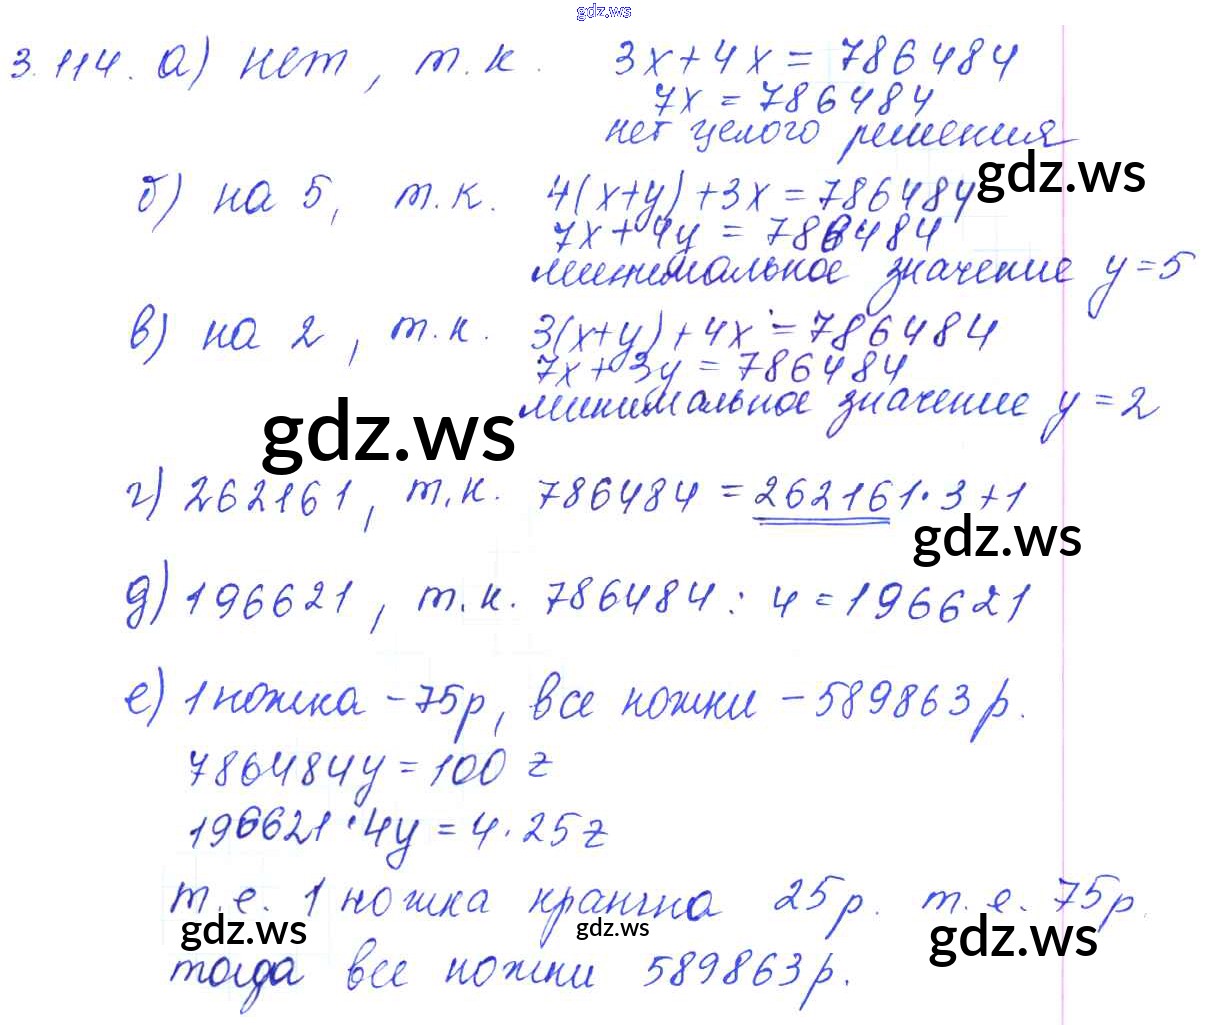 gdz.ws
3.114. а) нет, т.к. 3x+4x=786484
7x=786484
нет целого решения
gdz.ws
б) на 5, т.к. 4(x+y)+3x=786484
7x+4y=786484
минимальное значение y=5
в) на 2, т.к. 3(x+y)+4x=786484
7x+3y=786484
минимальное значение y=2
gdz.ws
г) 262161, т.к. 786484=262161·3+1
gdz.ws
д) 196621, т.к. 786484:4=196621
е) 1 ножка -75р, все ножки -589863р.
786484y=100z
196621·4y=4·25z
т.е. 1 ножка кратна 25р. т.е. 75р.
gdz.ws gdz.ws gdz.ws
тогда все ножки 589863р.